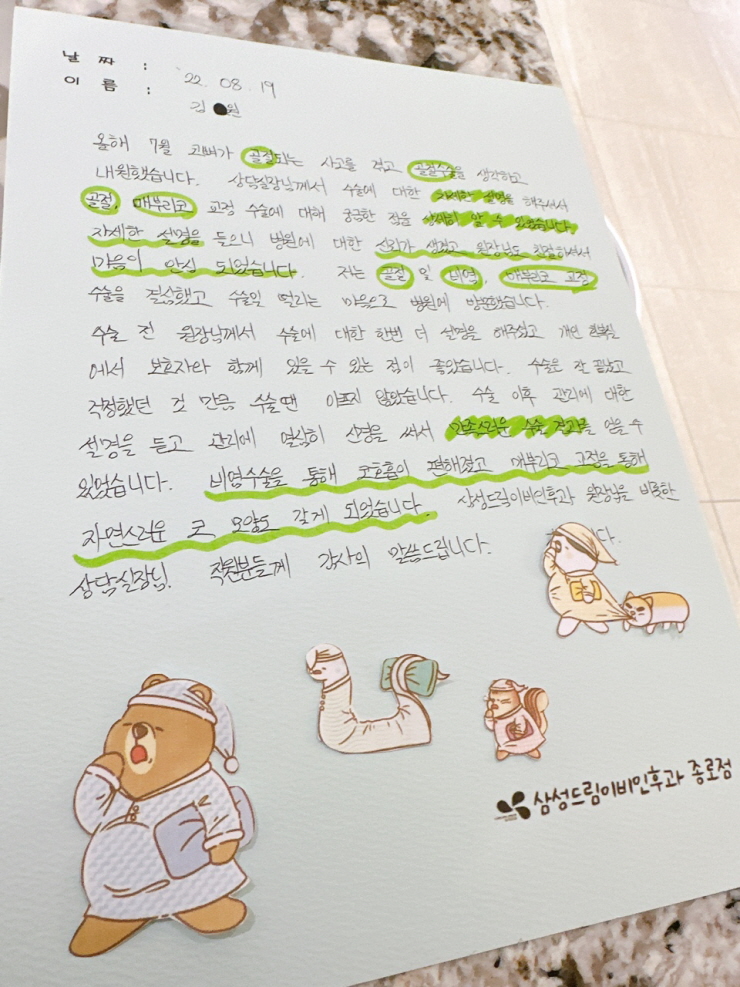 날 짜 : '22. 08. 19
이 름 : 김 원
올해 7월 코뼈가 골절되는 사고를 겪고 골절수술을 생각하고
내원했습니다. 상담실장님께서 수술에 대한 자세한 설명을 해주셔서
골절, 매부리코 교정 수술에 대해 궁금한 점을 상세히 알 수 있었습니다.
자세한 설명을 들으니 병원에 대한 신뢰가 생겼고 원장님도 친절하셔서
마음이 안심 되었습니다. 저는 골절 및 비염, 매부리코 교정
수술을 결심했고 수술일 떨리는 마음으로 병원에 방문했습니다.
수술 전 원장님께서 수술에 대한 한번 더 설명을 해주셨고 개인 회복실
에서 보호자와 함께 있을 수 있는 점이 좋았습니다. 수술은 잘 끝났고
걱정했던 것 만큼 수술땐 아프지 않았습니다. 수술 이후 관리에 대한
설명을 듣고 관리에 열심히 신경을 써서 만족스러운 수술 결과를 얻을 수
있었습니다. 비염수술을 통해 코호흡이 편해졌고 매부리코 교정을 통해
자연스러운 코 모양도 갖게 되었습니다. 삼성드림이비인후과 원장님을 비롯한
상담실장님, 직원분들께 감사의 말씀드립니다. 다.
삼성드림이비인후과 종로점